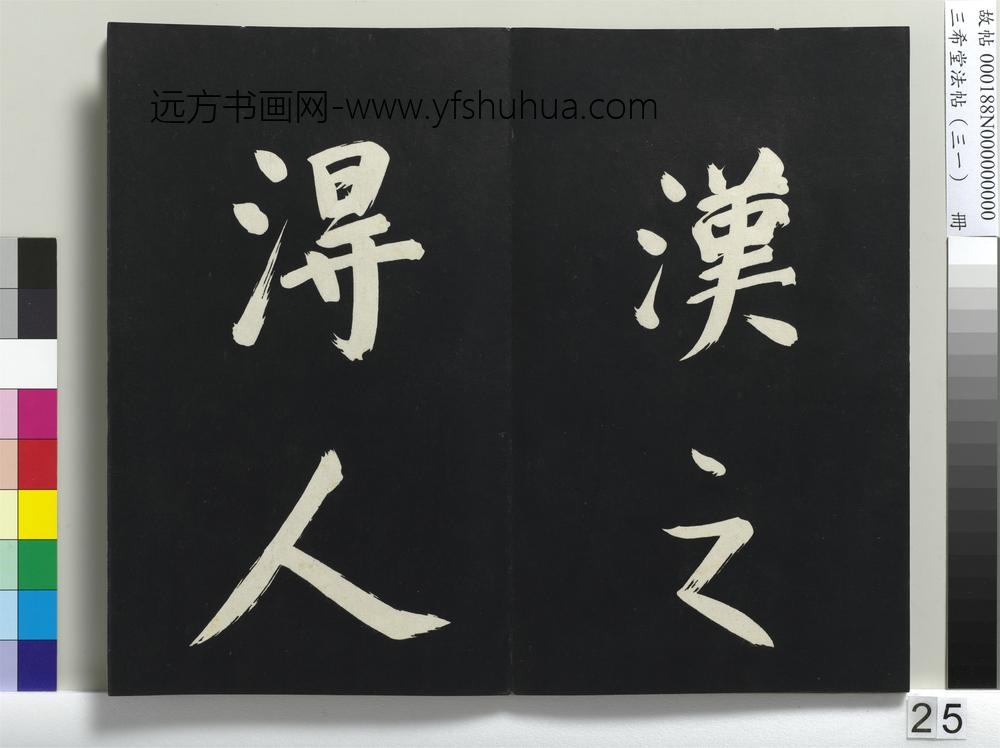 漢之
得人
远方书画网-www.yfshuhua.com
故帖 000188N000000000
三希堂法帖（三一） 冊
25